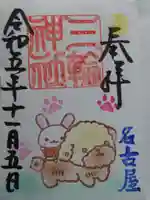 奉拝
三輪
神社
令和五年十一月五日
名古屋